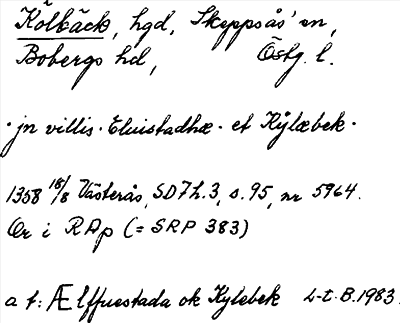 Kölbäck, hgd, Skeppsås' sn,
Bobergs hd, Östg. l.
· jn villis · Eluistadhæ · et Kylæbek ·
1358 18/8 Västerås, SD 7 h. 3, s. 95, nr 5964.
Or i RAp (= SRP 383)
a t: Ælffuestada ok Kylebek L-t. B. 1983.